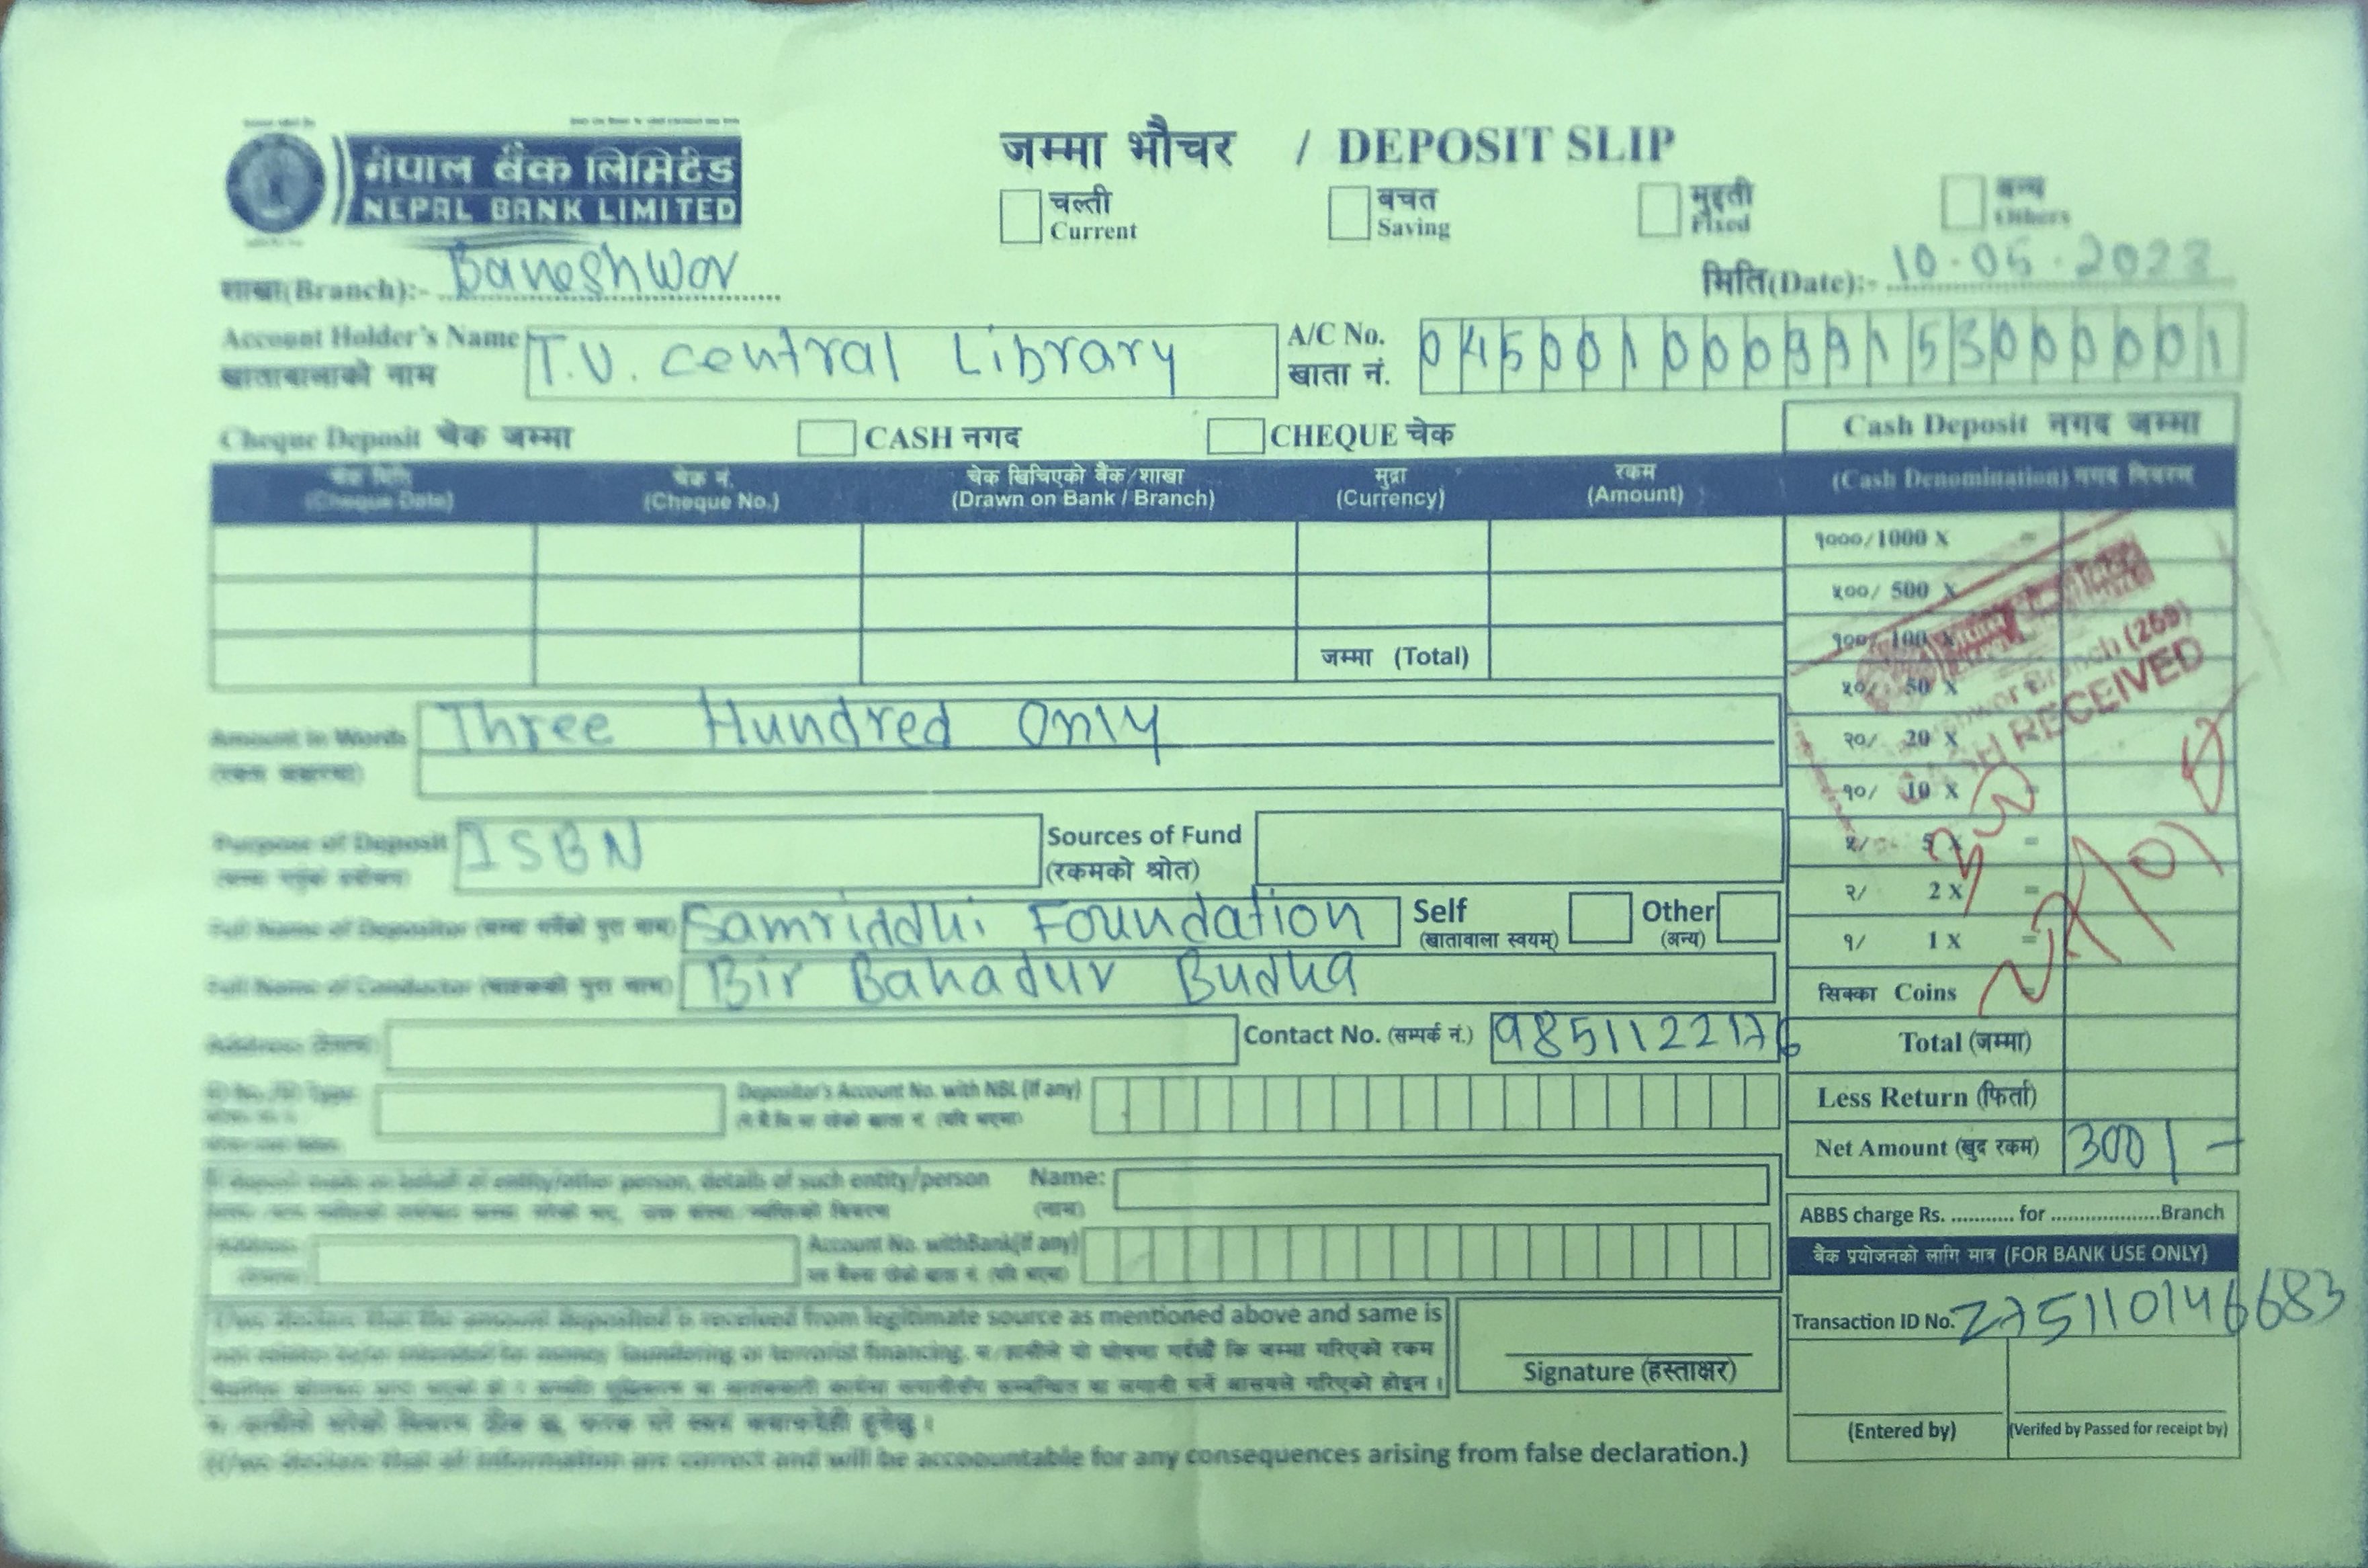 नेपाल बैंक लिमिटेड
NEPAL BANK LIMITED
जम्मा भौचर / DEPOSIT SLIP
चल्ती Current
बचत Saving
मुद्दती Fixed
अन्य Others
शाखा(Branch):- Baneshwor
मिति(Date):- 10.05.2023
Account Holder's Name खातावालाको नाम T.U. central Library
A/C No. खाता नं. 04500100099153000001
Cheque Deposit चेक जम्मा
CASH नगद
CHEQUE चेक
Cash Deposit नगद जम्मा
चेक मिति (Cheque Date)
चेक नं. (Cheque No.)
चेक खिचिएको बैंक/शाखा (Drawn on Bank / Branch)
मुद्रा (Currency)
रकम (Amount)
(Cash Denomination) नगद विवरण
१०००/1000 X =
५००/ 500 X
१००/ 100 X
जम्मा (Total)
५०/ 50 X
Branch (269)
CASH RECEIVED
Amount in Words Three Hundred Only
२०/ 20 X
१०/ 10 X =
Purpose of Deposit ISBN
Sources of Fund (रकमको श्रोत)
५/ 5 X =
२/ 2 X =
Full Name of Depositor (जम्मा गर्नेको पुरा नाम) Samriddhi Foundation
Self (खातावाला स्वयम्)
Other (अन्य)
१/ 1 X =
Full Name of Conductor Bir Bahadur Budha
सिक्का Coins
Address (ठेगाना)
Contact No. (सम्पर्क नं.) 9851122176
Total (जम्मा)
Depositor's Account No. with NBL (if any)
Less Return (फिर्ता)
Net Amount (खुद रकम) 300/-
If deposit made on behalf of entity/other person, details of such entity/person
Name: (नाम)
ABBS charge Rs. ........... for ...................Branch
Address
Account No. withBank(if any)
बैंक प्रयोजनको लागि मात्र (FOR BANK USE ONLY)
Transaction ID No. 275110146683
I/we declare that the amount deposited is received from legitimate source as mentioned above and same is
money laundering or terrorist financing. म/हामीले यो घोषणा गर्दछौं कि जम्मा गरिएको रकम
गरिएको होइन ।
Signature (हस्ताक्षर)
(Entered by)
(Verifed by Passed for receipt by)
(I/we declare that all information are correct and will be accoountable for any consequences arising from false declaration.)